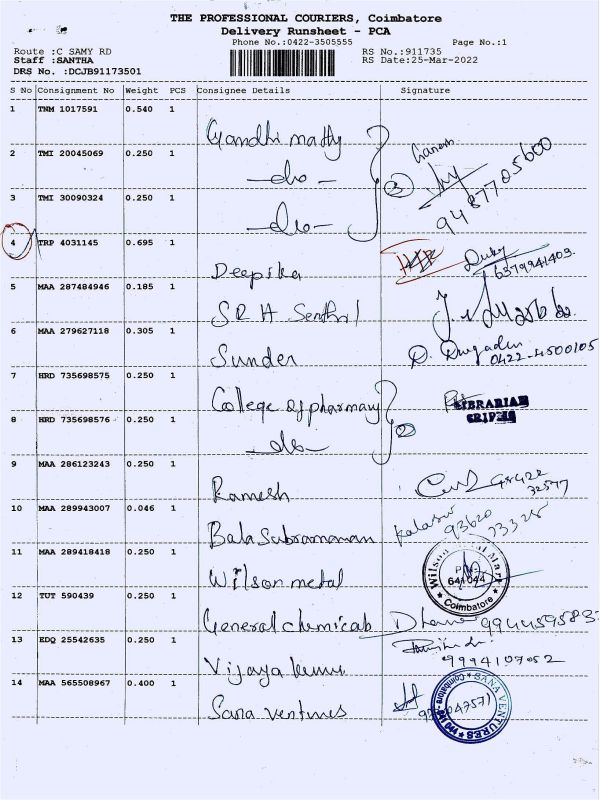 THE PROFESSIONAL COURIERS, Coimbatore
Delivery Runsheet - PCA
Phone No.:0422-3505555 Page No.:1
Route :C SAMY RD RS No.:911735
Staff :SANTHA RS Date:25-Mar-2022
DRS No. :DCJB91173501
S No Consignment No Weight PCS Consignee Details Signature
1 TNM 1017591 0.540 1 Gandhi mathy Ganesh
2 TMI 20045069 0.250 1 - do - 3 9487705600
3 TMI 30090324 0.250 1 - do -
4 TRP 4031145 0.695 1 Deepika 6379941403
5 MAA 287484946 0.185 1 SRH Senthil
6 MAA 279627118 0.305 1 Sunder 0422-4500105
7 HRD 735698575 0.250 1 College of pharmacy LIBRARIAN
8 HRD 735698576 0.250 1 - do - 2
9 MAA 286123243 0.250 1 Ramesh
10 MAA 289943007 0.046 1 Bala Subramaniam 93620 73325
11 MAA 289418418 0.250 1 Wilson metal 641044 Coimbatore
12 TUT 590439 0.250 1 General chemicals
13 EDQ 25542635 0.250 1 Vijaya kumar 9994107052
14 MAA 565508967 0.400 1 Sana ventures SANA VENTURES